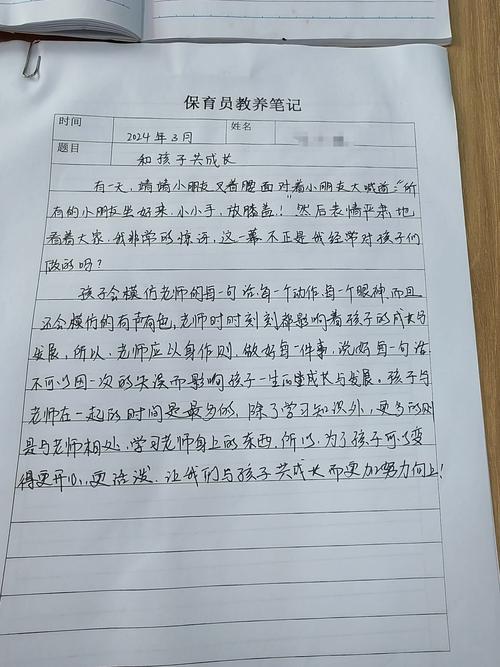 保育员教养笔记
时间 2024年3月 姓名
题目 和孩子共成长
有一天，婧婧小朋友叉着腰面对着小朋友大喊道："所
有的小朋友坐好来，小小手，放膝盖！"然后表情严肃地
看着大家，我非常的惊讶，这一幕不正是我经常对孩子们
做的吗？
孩子会模仿老师的每一句话，每一个动作，每一个眼神，而且
还会模仿的有声有色，老师时时刻刻都影响着孩子的成长与
发展，所以，老师应以身作则，做好每一件事，说好每一句话
不可以因一次的失误而影响孩子一生的成长与发展。孩子与
老师在一起的时间是最多的，除了学习知识外，更多的则
是与老师相处，学习老师身上的东西，所以，为了孩子可以变
得更开心，更活泼，让我们与孩子共成长而更加努力向上！